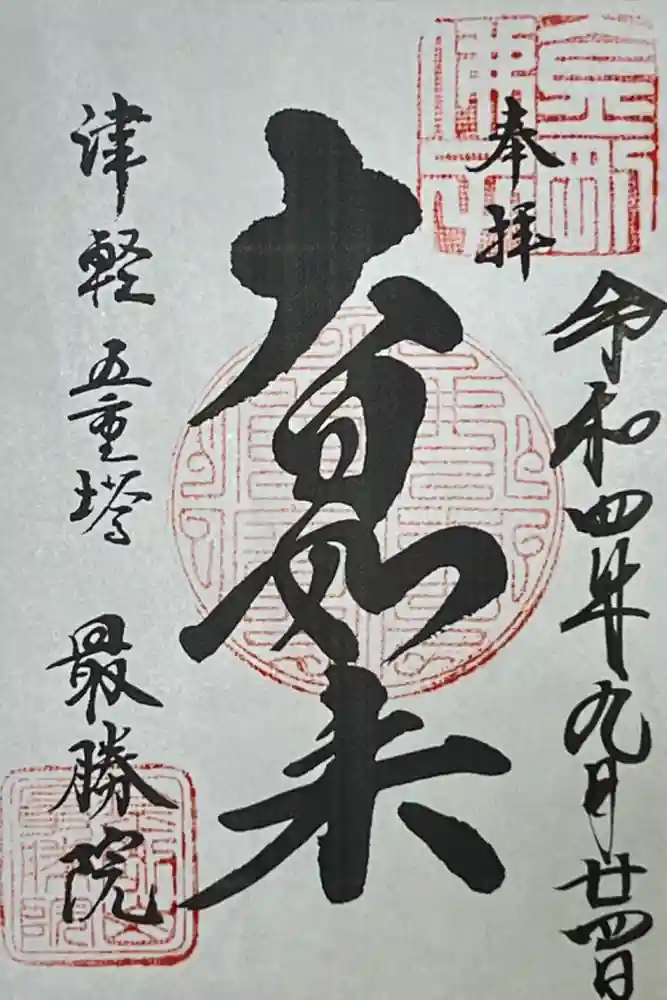 奉拝
令和四年九月廿四日
大日如来
津軽 五重塔 最勝院